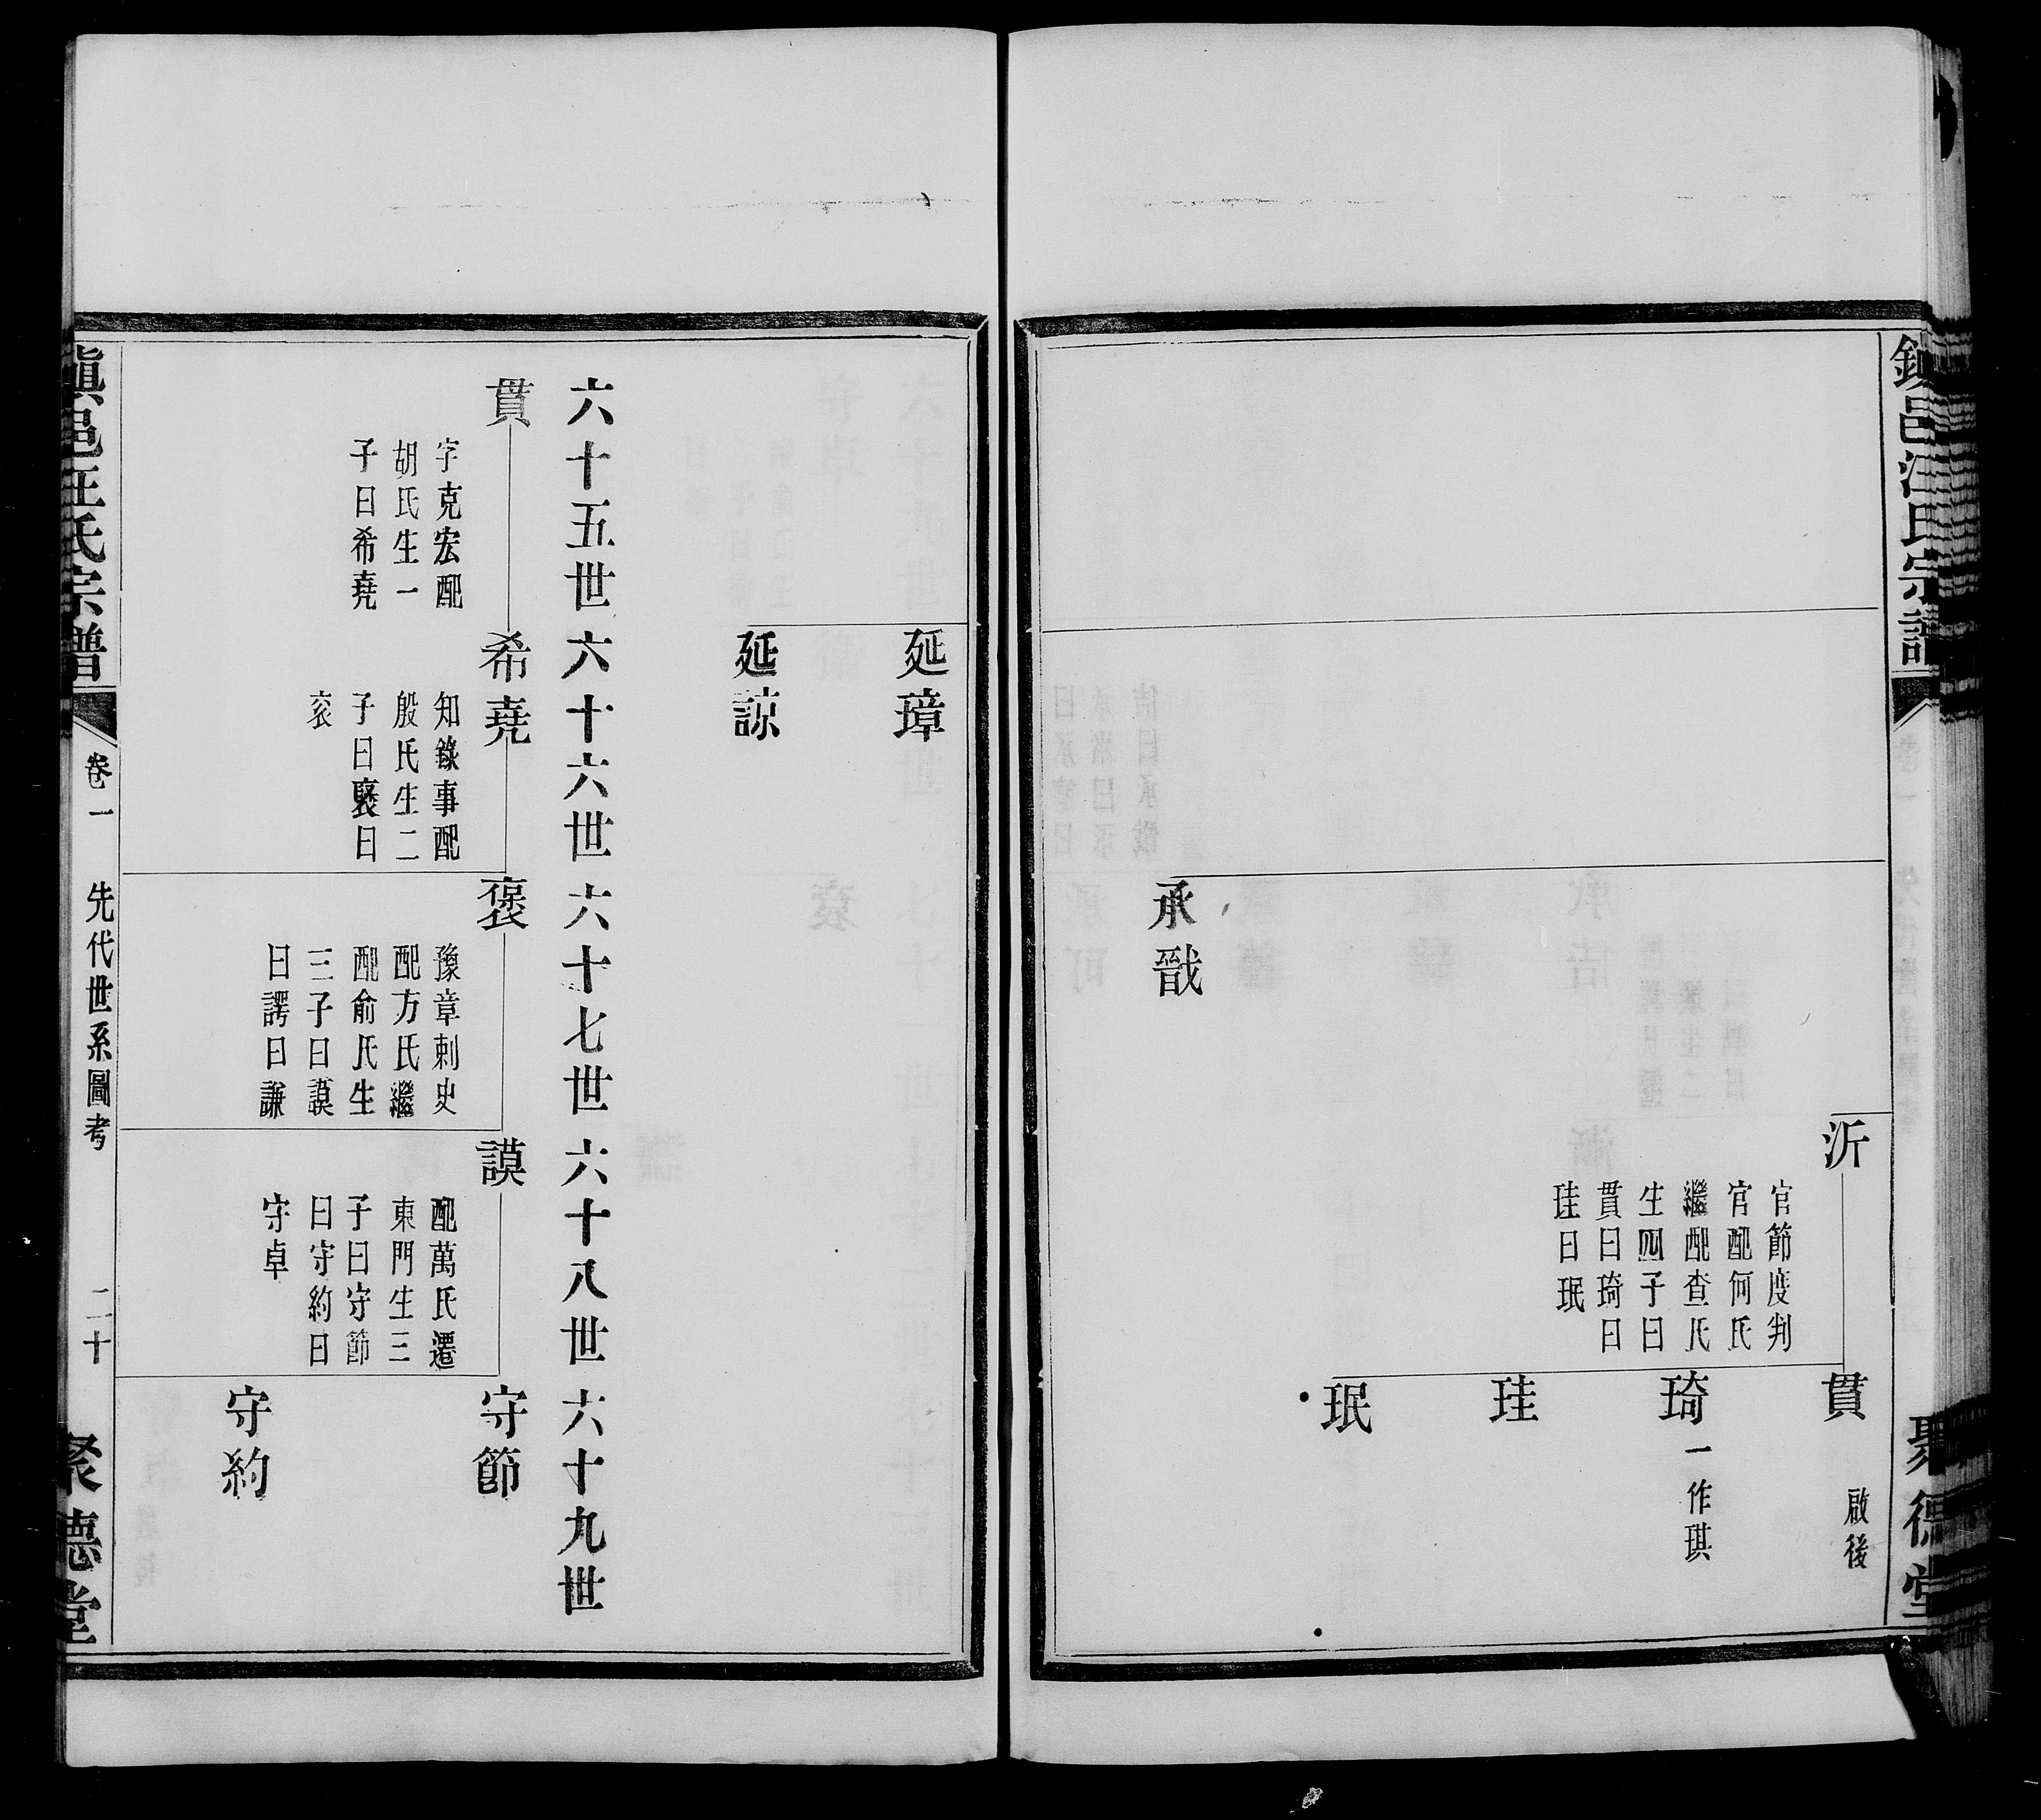 鎮邑汪氏宗譜
聚德堂
沂
官節度判
官配何氏
繼配查氏
生四子曰
貫曰琦曰
珪曰珉
貫
啟後
琦
一作琪
珪
珉
承戩
延璋
延諒
六十五世
六十六世
六十七世
六十八世
六十九世
貫
字克宏配
胡氏生一
子曰希堯
希堯
知錄事配
殷氏生二
子曰褒曰
衮
褒
豫章刺史
配方氏繼
配俞氏生
三子曰謨
曰諤曰謙
謨
配萬氏遷
東門生三
子曰守節
曰守約曰
守卓
守節
守約
鎮邑汪氏宗譜
卷一
先代世系圖考
二十
聚德堂